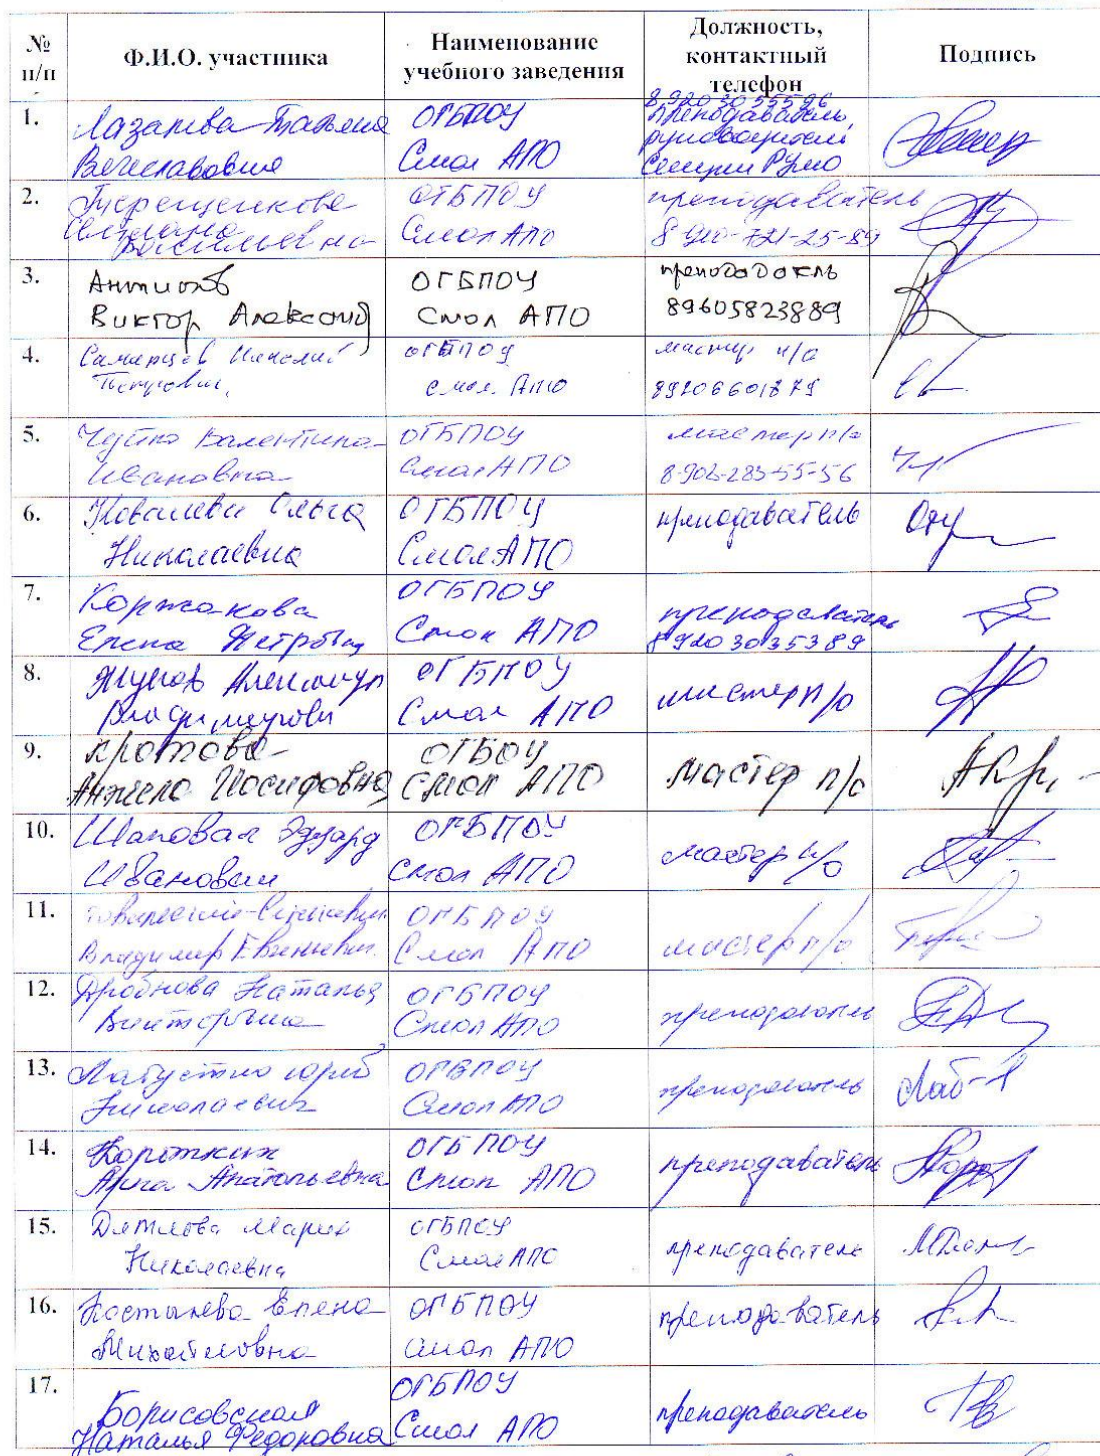 № п/п
Ф.И.О. участника
Наименование учебного заведения
Должность, контактный телефон
Подпись
1.
Татьяна
Вячеславовна
ОГБПОУ
Смол АПО
89203055596
преподаватель,
руководитель
секции РУМО
2.
Терещенкова
Светлана
Васильевна
ОГБПОУ
Смол АПО
преподаватель
8-910-721-25-89
3.
Антипов
Виктор Александ
ОГБПОУ
Смол АПО
преподаватель
89605823889
4.
ОГБПОУ
Смол. АПО
мастер п/о
89206601879
5.
Валентина
Ивановна
ОГБПОУ
Смол АПО
мастер п/о
8-902-283-55-56
6.
Ковалева Ольга
Николаевна
ОГБПОУ
Смол АПО
преподаватель
7.
Коржакова
Елена Петровна
ОГБПОУ
Смол АПО
преподаватель
89203035389
8.
Жуков Александр
Владимирович
ОГБПОУ
Смол АПО
мастер п/о
9.
Кротова
Анжела Иосифовна
ОГБОУ
Смол АПО
мастер п/о
10.
Шаповал Эдуард
Иванович
ОГБПОУ
Смол АПО
мастер п/о
11.
Владимир Евгеньевич
ОГБПОУ
Смол АПО
мастер п/о
12.
Дробнова Наталья
Викторовна
ОГБПОУ
Смол АПО
преподаватель
13.
Лабустно Юрий
Николаевич
ОГБПОУ
Смол АПО
преподаватель
14.
Коротких
Анатольевна
ОГБПОУ
Смол АПО
преподаватель
15.
Дятлова Мария
Николаевна
ОГБПОУ
Смол АПО
преподаватель
16.
Костылева Елена
Михайловна
ОГБПОУ
Смол АПО
преподаватель
17.
Борисовская
Наталья Федоровна
ОГБПОУ
Смол АПО
преподаватель